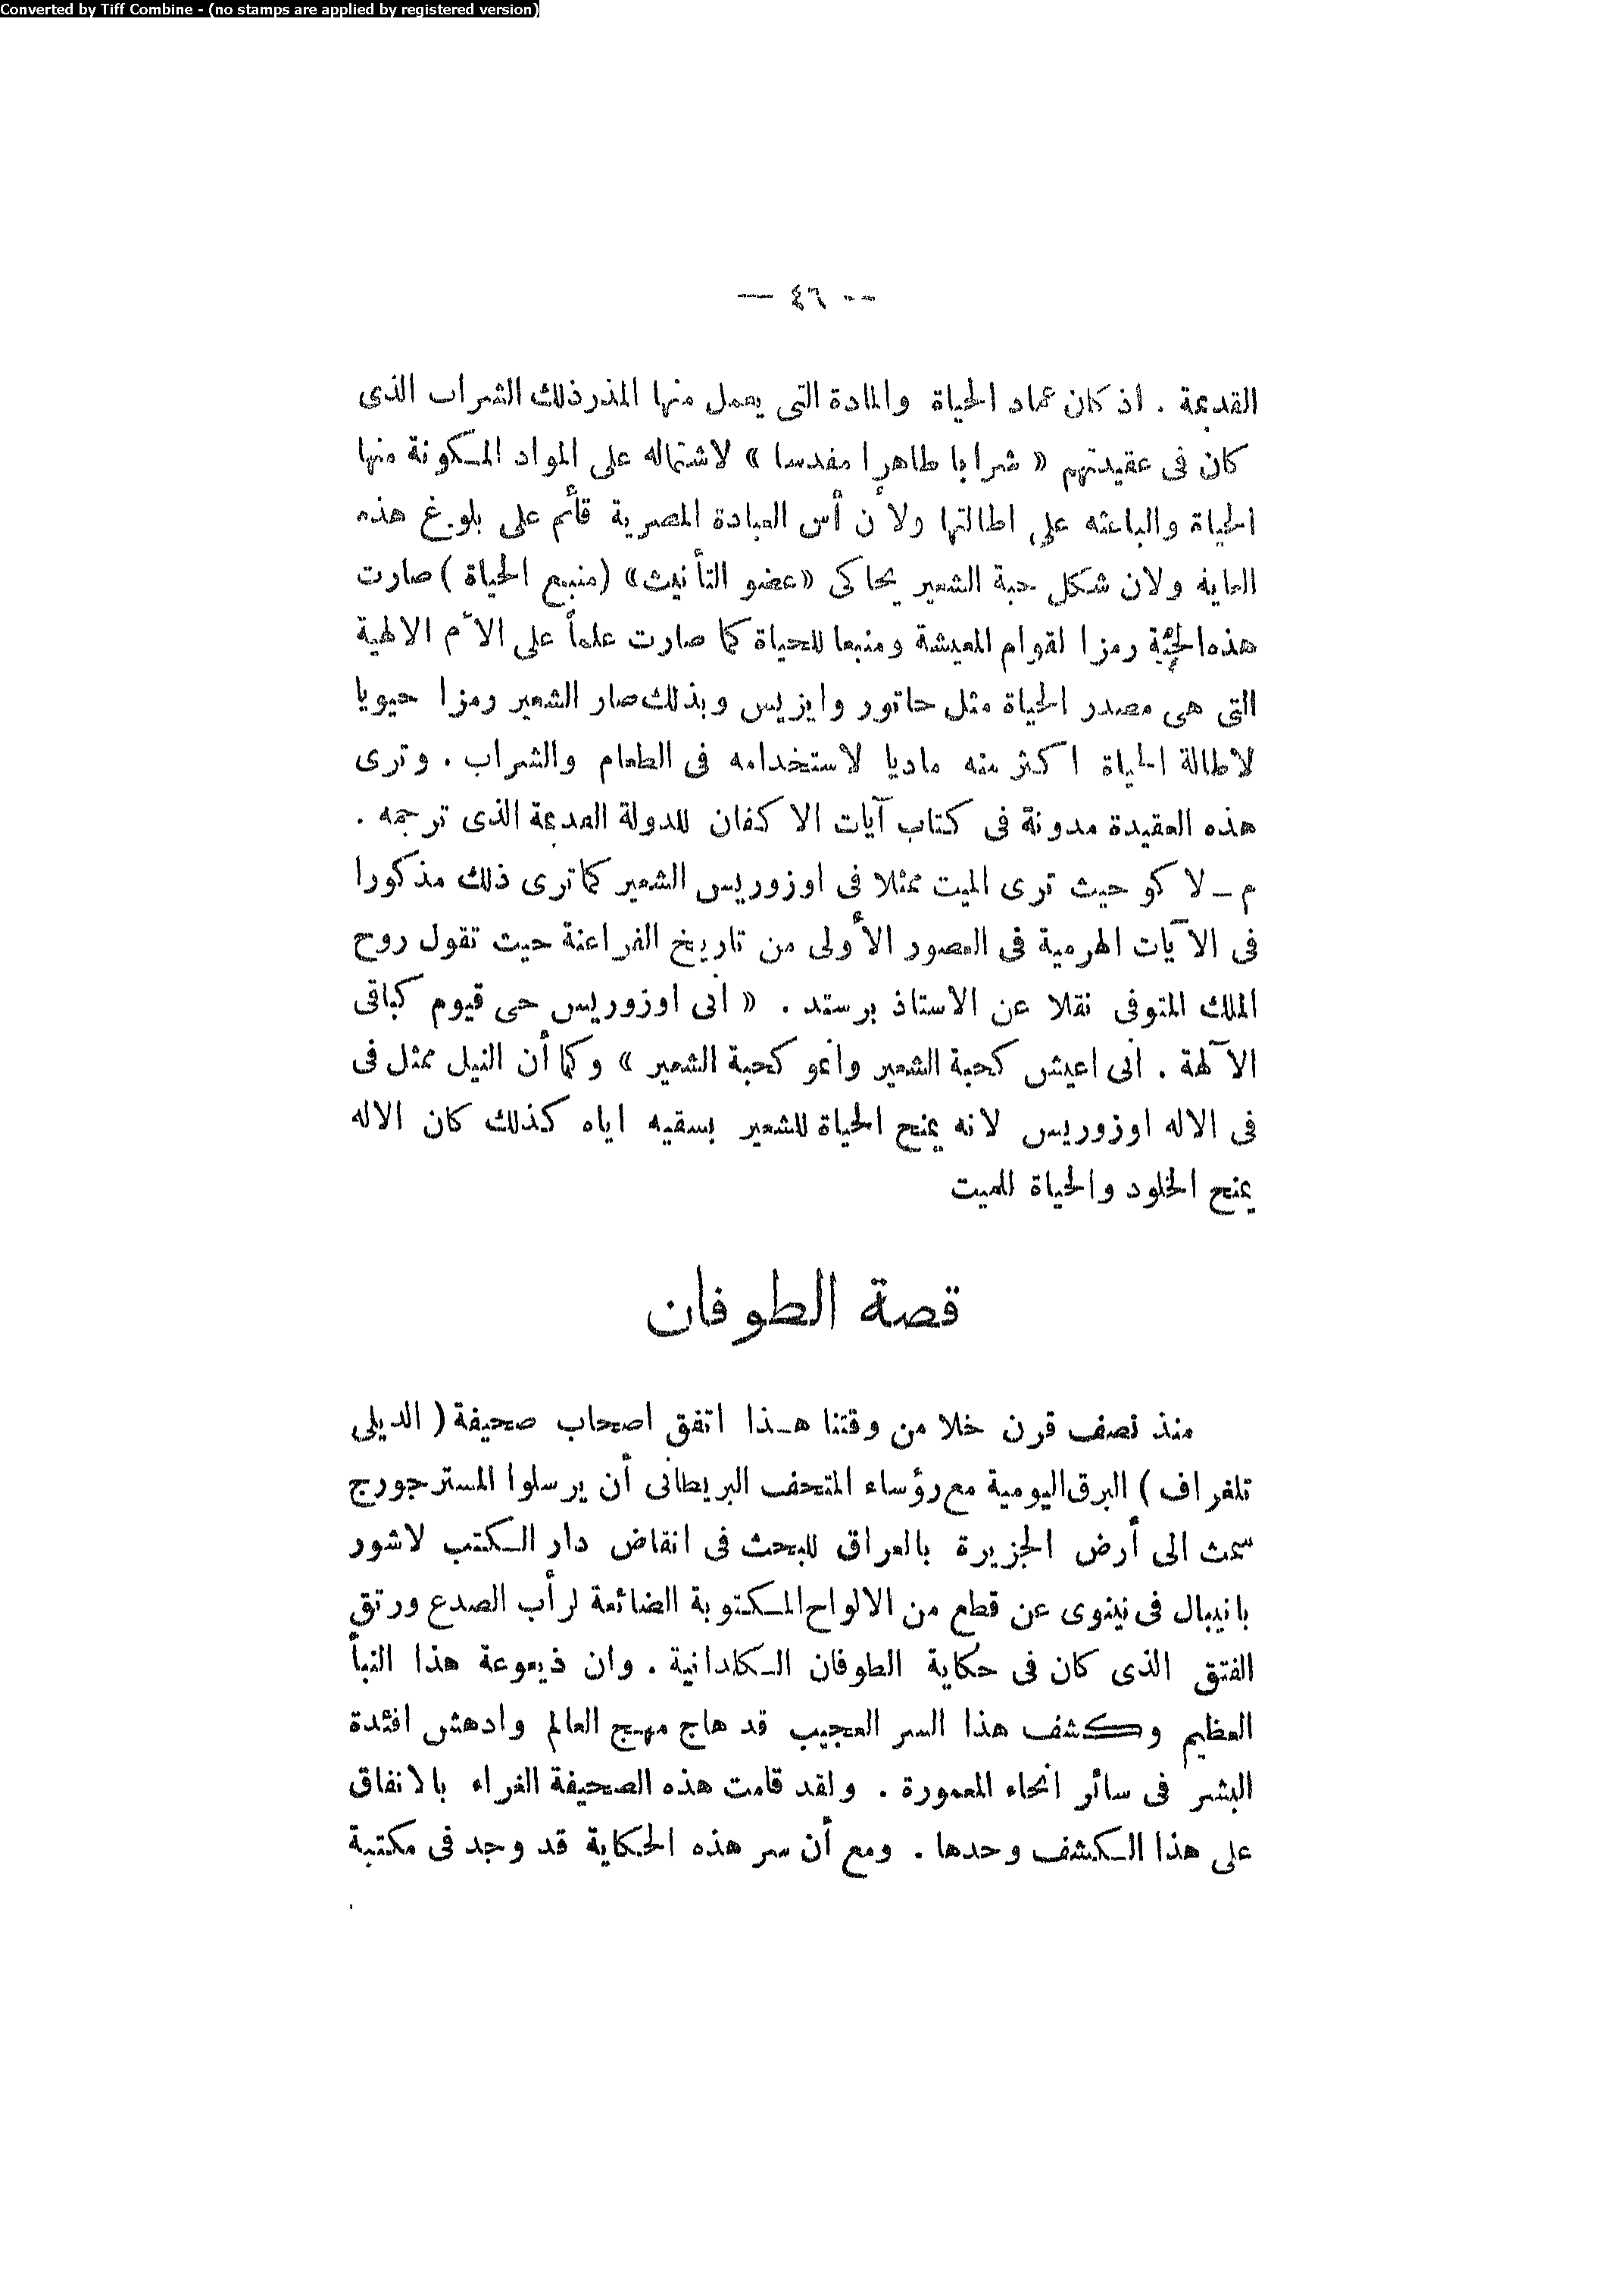 Converted by Tiff Combine - (no stamps are applied by registered version)
-- ٤٦ —
القديمة . اذ كان عماد الحياة والمادة التى يعمل منها المذر ذلك الشراب الذى
كان فى عقيدتهم « شرابا طاهرا مقدسا » لاشتماله على المواد المكونة منها
الحياة والباعثه على اطالتها ولأن أس العبادة المصرية قائم على بلوغ هذه
الغاية ولان شكل حبة الشعير يحاكى «عضو التأنيث» (منبع الحياة) صارت
هذه الحبة رمزا لقوام المعيشة ومنبعا للحياة كما صارت علماً على الأم الالهية
التى هى مصدر الحياة مثل حاتور وايزيس وبذلك صار الشعير رمزا حيويا
لاطالة الحياة اكثر منه ماديا لاستخدامه فى الطعام والشراب . وترى
هذه العقيدة مدونة فى كتاب آيات الاكفان للدولة القديمة الذى ترجمه .
م - لاكو حيث ترى الميت ممثلا فى اوزوريس الشعير كما ترى ذلك مذكورا
فى الآيات الهرمية فى العصور الأولى من تاريخ الفراعنة حيث تقول روح
الملك المتوفى نقلا عن الاستاذ برستد . « انى اوزوريس حى قيوم كباقى
الآلهة . انى اعيش كحبة الشعير وانمو كحبة الشعير » وكما أن النيل ممثل فى
فى الاله اوزوريس لانه يمنح الحياة للشعير بسقيه اياه كذلك كان الاله
يمنح الخلود والحياة للميت
قصة الطوفان
منذ نصف قرن خلا من وقتنا هذا اتفق اصحاب صحيفة ( الديلى
تلغراف ) البرق اليومية مع رؤساء المتحف البريطانى أن يرسلوا المستر جورج
سمث الى أرض الجزيرة بالعراق للبحث فى انقاض دار الكتب لاشور
بانيبال فى نينوى عن قطع من الالواح المكتوبة الضائعة لرأب الصدع ورتق
الفتق الذى كان فى حكاية الطوفان الكلدانية . وان ذيوعة هذا النبأ
العظيم وكشف هذا السر العجيب قد هاج مهج العالم وادهش افئدة
البشر فى سائر انحاء المعمورة . ولقد قامت هذه الصحيفة الغراء بالانفاق
على هذا الكشف وحدها . ومع أن سر هذه الحكاية قد وجد فى مكتبة